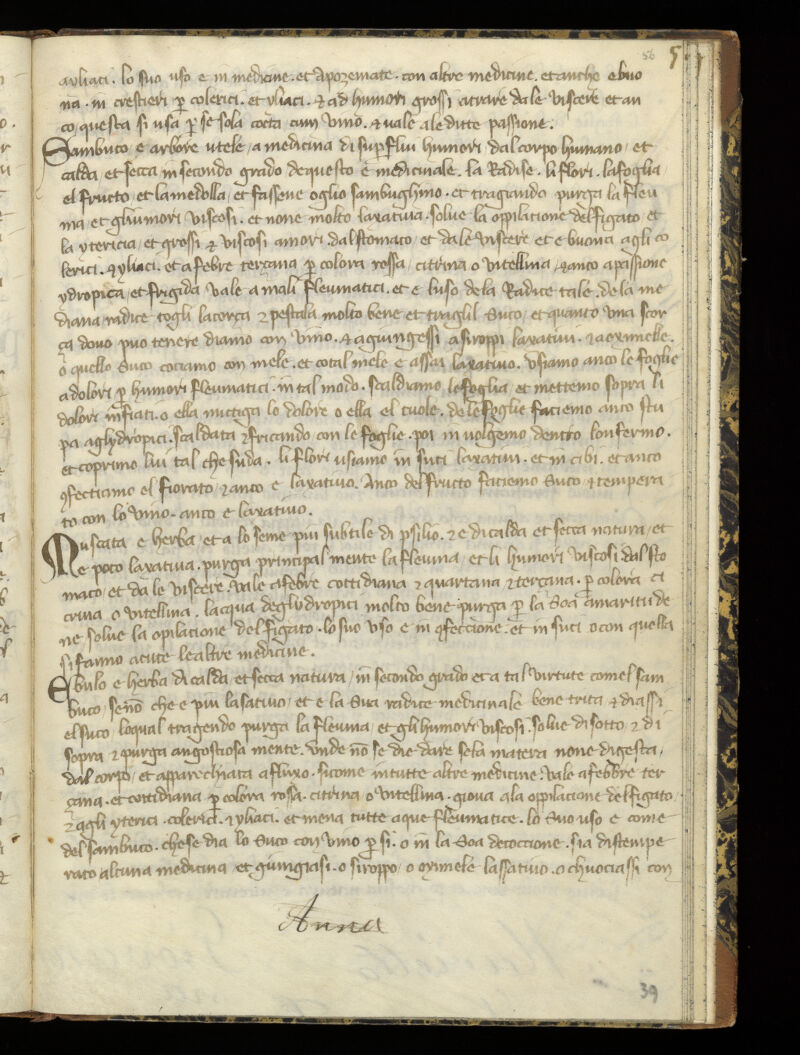 56 5
ayliaci. lo suo uso e in medicine. et apozemate. con altre medicine. et anche e buo
na. in crestieri p colerici. et yliaci. & ad humori grossi atrare dale viscere et an
co questa si usa p se sola cocta cum vino. & vale ale ditte passione.
Sambuco e arbore utele, a medicina di supflui humori dal corpo humano, et
calda, et secca in secondo grado de questo e medicinale. la Radise. li flori. la foglia
el fructo, et la medolla, et fassene oglio sambughino. et tragiando purga la fleu
ma, et gliumori viscosi. et none molto laxativa. solve la opilatione del figato, et
la ytericia, et grossi & viscosi amori. dal stomaco, et dale viscere et e buona agli co
lerici. & yliaci. et a febre terzana p colora rossa, citrina o vitellina, & anco a passione
ydropica, et frigida vale a mali fleumatici. et e luso de la Radice tale. de la me
diana radice togli la corça & pestala molto bene et traglil suco, et quanto una scor
ça dovo puo tenere diamo con vino. & agiungessi a siroppi laxativi. & a oximelle.
o quello suco cociamo con mele. et cotal mele e assai laxativo. Usiamo anco le foglie
a dolori p humori fleumatici. in tal modo. scaldiamo le foglia et mettemo sopra li
dolori infiati. o ella mitiga lo dolore o ella el tuole. de le foglie faciemo anco stu
pa agli ydropici. scaldata & fricando con le foglie. poi in volgemo dentro lonfermo.
et coprimo lui tal che suda. li flori usiamo in suci laxativi. et in cibi. et anco
9fectiamo el fiorato & anco e laxativo. Anco del fructo faciemo suco & tempera
to con lo vino. anco e laxativo.
Muscata e herba et a lo seme piu subtile di psilio. & e di calda et secca natura, et
e poco laxativa. purga principalmente la fleuma, et li humori viscosi dal sto
maco, et da le viscere. vale a febre cottidiana & quartana & terzana. p colora ci
trina o vitellina. lacqua degli ydropici molto bene purga p la soa amaritude
ne solve la opilatione del figato. lo suo uso e in 9fectione. et in suci o con quella
si fanno acute le altre medicine.
Ebulo e herba di calda et secca natura, in secondo grado et a tal virtute come l sam
buco, seno che e piu lasativo, et e la sua radice medicinale bene trita & diassi
el suco, loqual tragendo purga la fleuma, et gli humori viscosi. solve di sotto & di
sopra & purga angosciosa mente. unde no se die dare se la matera none digesta,
dal corpo, et apparechiata a fluxo. sicome in tutte altre medicine. vale a febbre ter
çana. et cottidiana p colora rossa. citrina o vitellina. giova ala oppilatione del figato
& agli yterici. colerici. & yliaci. et mena tutte aque fleumatice. lo suo uso e come
del sambuco. che se dia lo suco con vino p si. o in la soa decoctione. sia distempe
rato alcuna medicina et giungiasi. o siroppo, o oximele lassativo. o chuociassi con
Anna
39